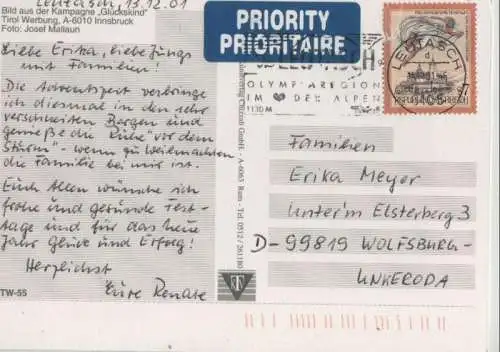 Leutasch, 13.12.01
Bild aus der Kampagne „Glückskind"
Tirol Werbung, A-6010 Innsbruck
Foto: Josef Mallaun
Liebe Erika, liebe Jungs
mit Familien!
Die Adventszeit verbringe
ich diesmal in den sehr
verschneiten Bergen und
genieße die Ruhe "vor dem
Sturm" - wenn zu Weihnachten
die Familie bei mir ist.
Euch Allen wünsche ich
frohe und gesunde Fest-
tage und für das neue
Jahr Glück und Erfolg!
Herzlichst
Eure Renate
TW-55
A-6063 Rum - Tel. 0512 / 261180
T
PRIORITY
PRIORITAIRE
LEUTASCH
OLYMPIAREGION
IM ❤ DER ALPEN
1130 M
LEUTASCH
Familien
Erika Meyer
Unter'm Elsterberg 3
D-99819 WOLFSBURG-
UNKERODA